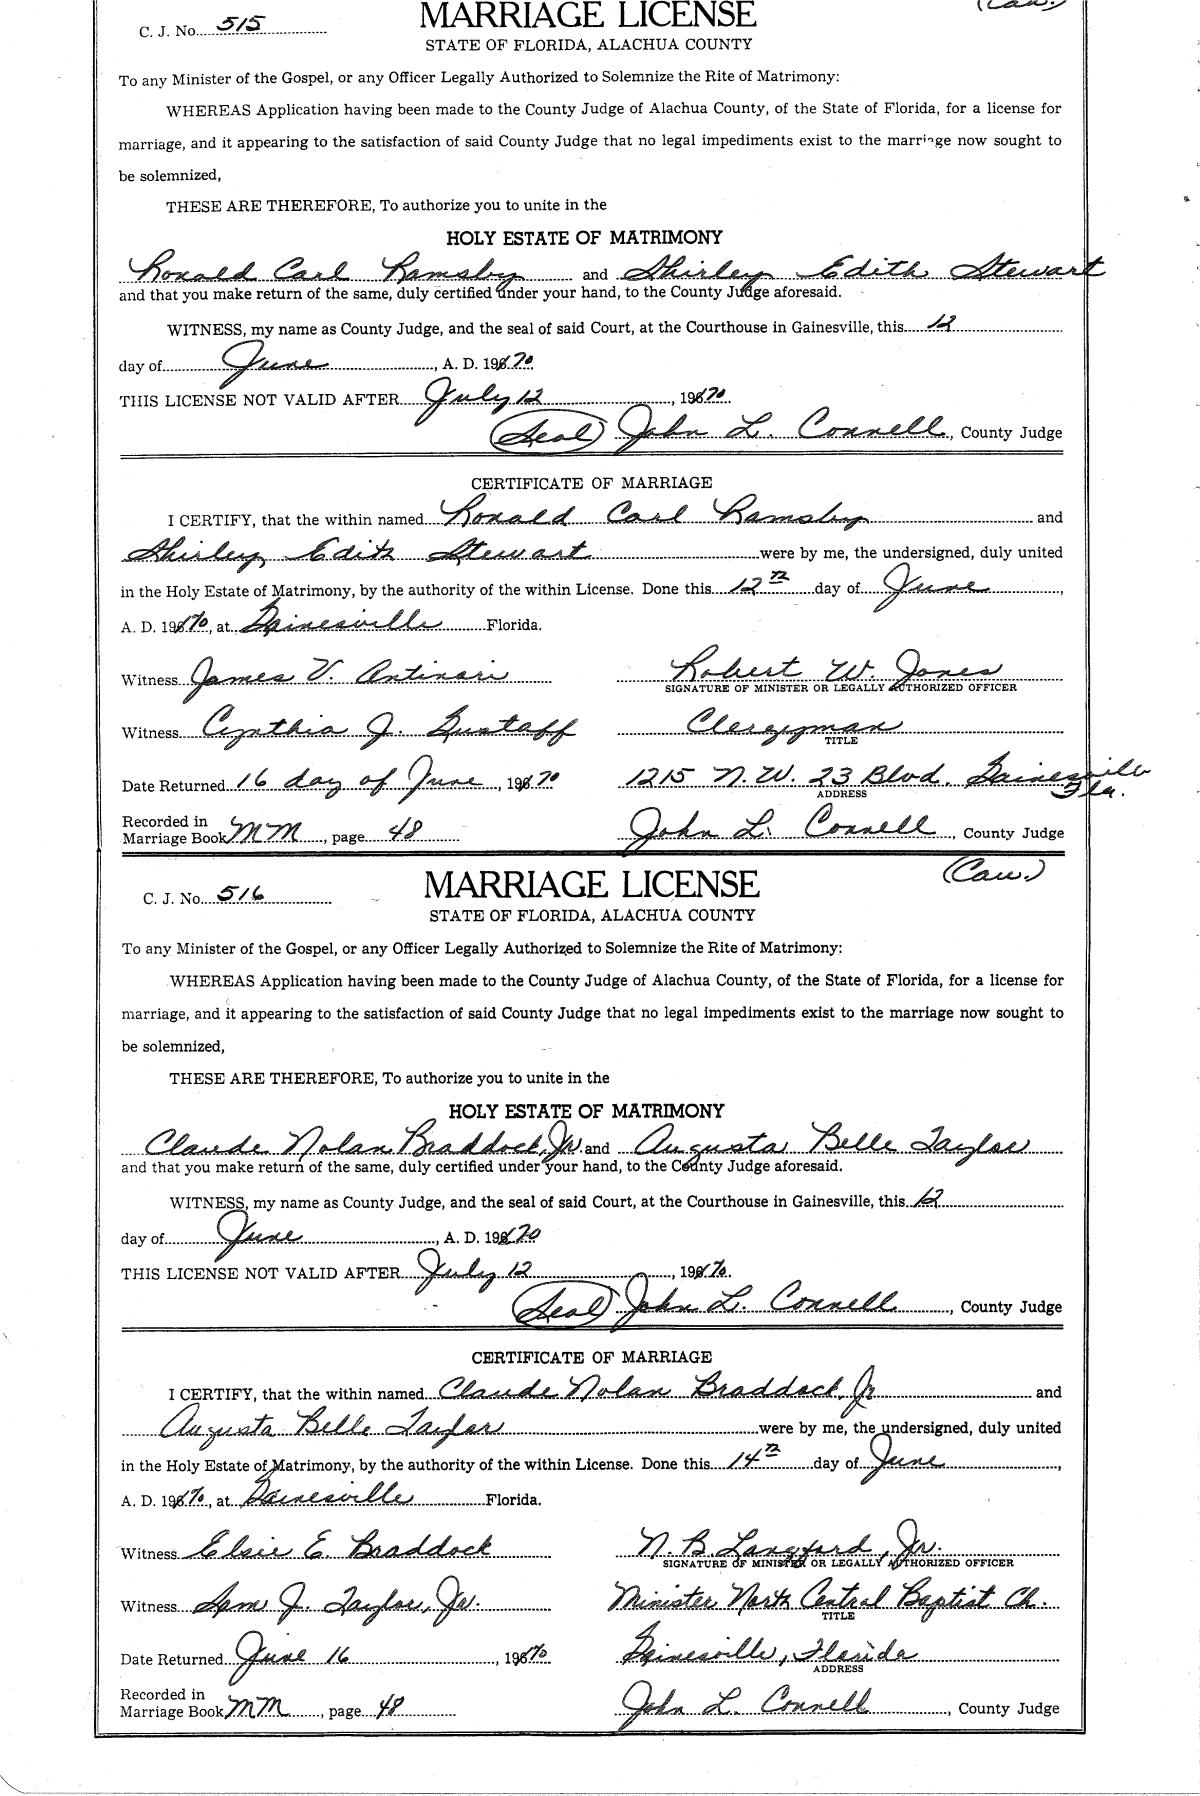 (Cau.)
C. J. No. 515
MARRIAGE LICENSE
STATE OF FLORIDA, ALACHUA COUNTY
To any Minister of the Gospel, or any Officer Legally Authorized to Solemnize the Rite of Matrimony:
WHEREAS Application having been made to the County Judge of Alachua County, of the State of Florida, for a license for
marriage, and it appearing to the satisfaction of said County Judge that no legal impediments exist to the marriage now sought to
be solemnized,
THESE ARE THEREFORE, To authorize you to unite in the
HOLY ESTATE OF MATRIMONY
Ronald Carl Ramsby and Shirley Edith Stewart
and that you make return of the same, duly certified under your hand, to the County Judge aforesaid.
WITNESS, my name as County Judge, and the seal of said Court, at the Courthouse in Gainesville, this 12
day of June, A. D. 1970
THIS LICENSE NOT VALID AFTER July 12, 1970
(Seal) John L. Connell, County Judge
CERTIFICATE OF MARRIAGE
I CERTIFY, that the within named Ronald Carl Ramsby and
Shirley Edith Stewart were by me, the undersigned, duly united
in the Holy Estate of Matrimony, by the authority of the within License. Done this 12th day of June,
A. D. 1970, at Gainesville Florida.
Witness James V. Antinari Robert W. Jones
SIGNATURE OF MINISTER OR LEGALLY AUTHORIZED OFFICER
Witness Cynthia J. Gustaff Clergyman
TITLE
Date Returned 16 day of June, 1970 1215 N.W. 23 Blvd. Gainesville Fla.
ADDRESS
Recorded in
Marriage Book MM, page 48 John L. Connell, County Judge
(Cau.)
C. J. No. 516
MARRIAGE LICENSE
STATE OF FLORIDA, ALACHUA COUNTY
To any Minister of the Gospel, or any Officer Legally Authorized to Solemnize the Rite of Matrimony:
WHEREAS Application having been made to the County Judge of Alachua County, of the State of Florida, for a license for
marriage, and it appearing to the satisfaction of said County Judge that no legal impediments exist to the marriage now sought to
be solemnized,
THESE ARE THEREFORE, To authorize you to unite in the
HOLY ESTATE OF MATRIMONY
Claude Nolan Braddock, Jr. and Augusta Belle Taylor
and that you make return of the same, duly certified under your hand, to the County Judge aforesaid.
WITNESS, my name as County Judge, and the seal of said Court, at the Courthouse in Gainesville, this 12
day of June, A. D. 1970
THIS LICENSE NOT VALID AFTER July 12, 1970.
(Seal) John L. Connell, County Judge
CERTIFICATE OF MARRIAGE
I CERTIFY, that the within named Claude Nolan Braddock, Jr. and
Augusta Belle Taylor were by me, the undersigned, duly united
in the Holy Estate of Matrimony, by the authority of the within License. Done this 14th day of June,
A. D. 1970, at Gainesville Florida.
Witness Elsie E. Braddock N. B. Langford, Jr.
SIGNATURE OF MINISTER OR LEGALLY AUTHORIZED OFFICER
Witness Sam J. Taylor, Jr. Minister North Central Baptist Ch.
TITLE
Date Returned June 16, 1970 Gainesville, Florida
ADDRESS
Recorded in
Marriage Book MM, page 48 John L. Connell, County Judge